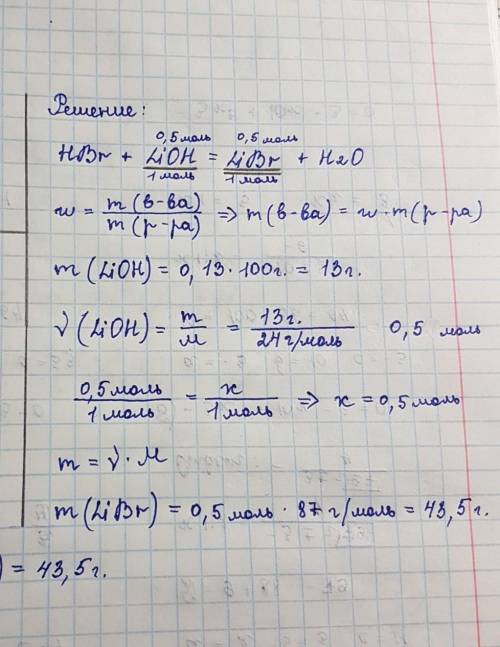 Решение:
0,5 моль 0,5 моль
HBr + LiOH = LiBr + H2O
1 моль 1 моль
w = m (в-ва) / m (р-ра) => m (в-ва) = w · m (р-ра)
m (LiOH) = 0,13 · 100 г. = 13 г.
ν (LiOH) = m / M = 13 г. / 24 г/моль 0,5 моль
0,5 моль / 1 моль = x / 1 моль => x = 0,5 моль
m = ν · M
m (LiBr) = 0,5 моль · 87 г/моль = 43,5 г.
) = 43,5 г.